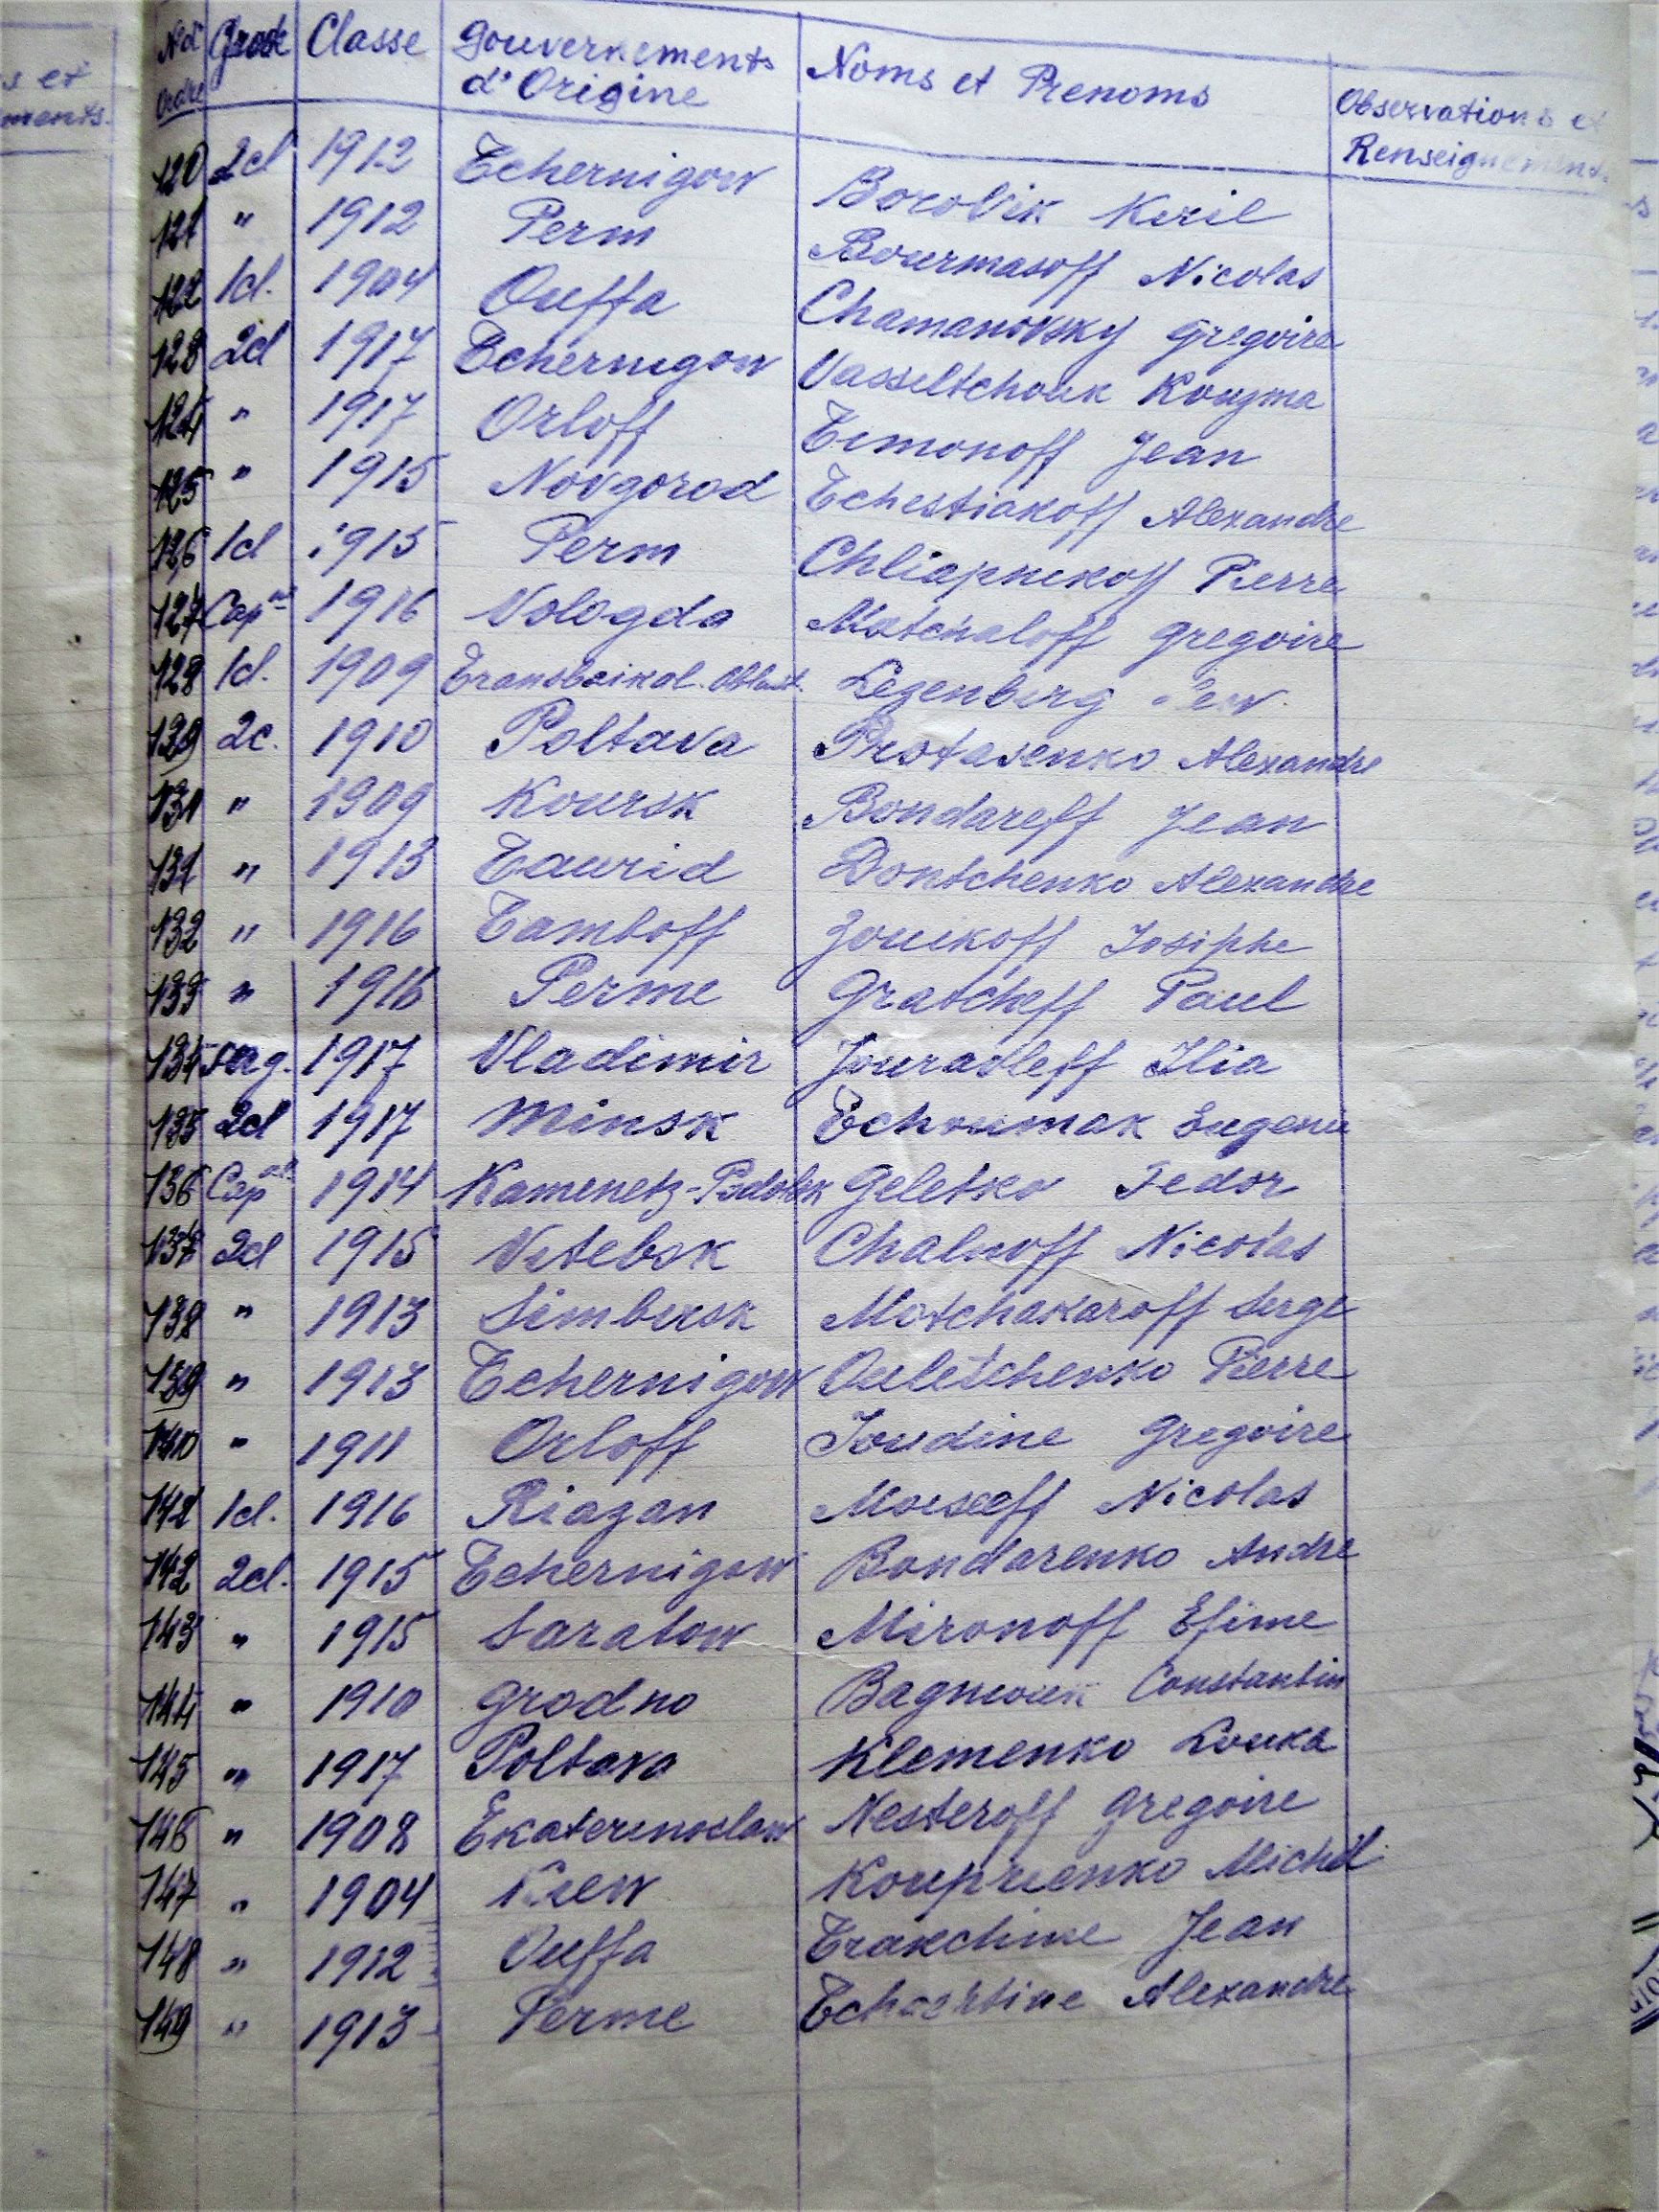 s et
ments.
No d'Ordre Grade Classe Gouvernements d'Origine Noms et Prenoms Observations et Renseignements
120 2cl 1912 Tchernigow Borovik Kiril
121 " 1912 Perm Bourmasoff Nicolas
122 1cl. 1904 Ouffa Chamanovsky Gregoire
123 2cl 1917 Tchernigow Vasseltchouk Kouzma
124 " 1917 Orloff Timonoff Jean
125 " 1915 Novgorod Tchestiakoff Alexandre
126 1cl 1915 Perm Chliapnikoff Pierre
127 Cap al 1916 Vologda Matchaloff Gregoire
128 1cl. 1909 Transbaikal. Oblast. Lezenberg
129 2c. 1910 Poltava Protasenko Alexandre
131 " 1909 Koursk Bondareff Jean
131 " 1913 Taurid Dontchenko Alexandre
132 " 1916 Tamboff Joukoff Josiphe
133 " 1916 Perme Gratcheff Paul
134 serg. 1917 Vladimir Jouravleff Ilia
135 2cl 1917 Minsk Tchoumak Eugenie
136 Cap al. 1914 Kamenetz-Podolsk Geletko Fedor
137 2cl 1915 Vitebsk Chalnoff Nicolas
138 " 1913 Simbirsk Motchakaroff Serge
139 " 1913 Tchernigow Ouletchenko Pierre
140 " 1911 Orloff Ioudine Gregoire
141 1cl. 1916 Riazan Moiseeff Nicolas
142 2cl. 1915 Tchernigow Bondarenko Andre
143 " 1915 Saratow Mironoff Efime
144 " 1910 Grodno Constantin
145 " 1917 Poltava Klemenko Louka
146 " 1908 Ekaterinoslaw Nesteroff Gregoire
147 " 1904 Kiew Kouprienko Michel
148 " 1912 Ouffa Trakchine Jean
149 " 1913 Perme Alexandre